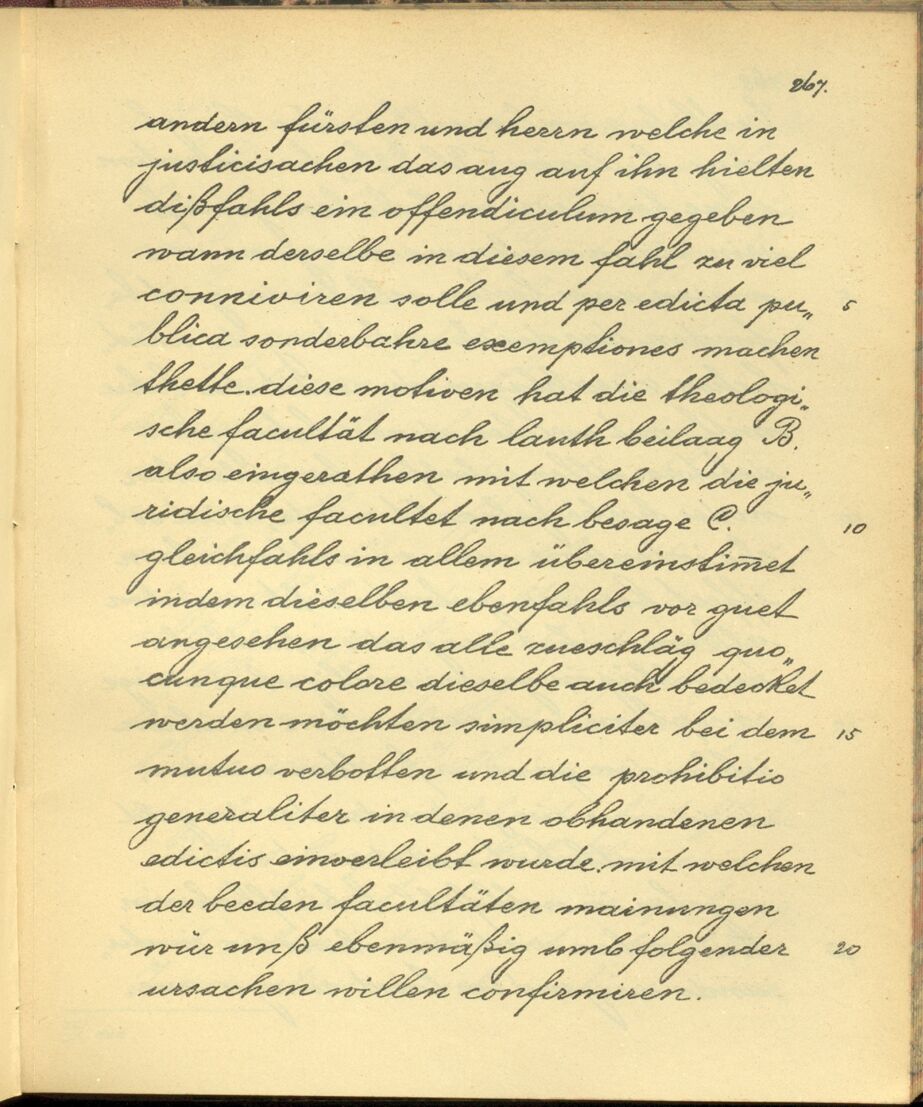 267.
andern fürsten und herrn welche in
justicisachen das aug auf ihn hielten
dißfahls ein offendiculum gegeben
wann derselbe in diesem fahl zu viel
conniviren solle und per edicta pu„ 5
blica sonderbahre exemptiones machen
thette. diese motiven hat die theologi„
sche facultät nach lauth beilaag B.
also eingerathen mit welchen die ju„
ridische facultet nach besage C. 10
gleichfahls in allem übereinstim̅et
indem dieselben ebenfahls vor guet
angesehen das alle zueschläg quo„
cunque colore dieselbe auch bedecket
werden möchten simpliciter bei dem 15
mutuo verbotten und die prohibitio
generaliter in denen obhandenen
edictis einverleibt wurde. mit welchen
der beeden facultäten mainungen
wür unß ebenmäßig umb folgender 20
ursachen willen confirmiren.